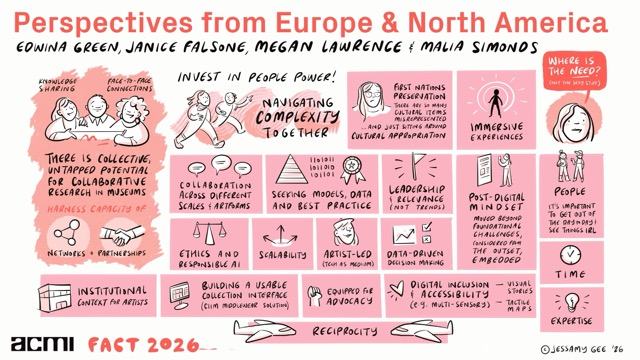 Perspectives from Europe & North America
EDWINA GREEN, JANICE FALSONE, MEGAN LAWRENCE & MALIA SIMONDS
KNOWLEDGE
SHARING
FACE-TO-FACE
CONNECTIONS
THERE IS COLLECTIVE,
UNTAPPED POTENTIAL
FOR COLLABORATIVE
RESEARCH IN MUSEUMS
HARNESS CAPACITY OF
NETWORKS + PARTNERSHIPS
INVEST IN PEOPLE POWER!
NAVIGATING
COMPLEXITY
TOGETHER
FIRST NATIONS
PRESERVATION
THERE ARE SO MANY
CULTURAL ITEMS
MISREPRESENTED
...AND JUST SITTING AROUND
CULTURAL APPROPRIATION
IMMERSIVE
EXPERIENCES
WHERE IS
THE NEED?
COLLABORATION
ACROSS DIFFERENT
SCALES & ARTFORMS
SEEKING MODELS, DATA
AND BEST PRACTICE
LEADERSHIP
& RELEVANCE
(NOT TRENDS)
POST-DIGITAL
MINDSET
MOVED BEYOND
FOUNDATIONAL
CHALLENGES,
CONSIDERED FROM
THE OUTSET,
EMBEDDED
PEOPLE
IT'S IMPORTANT
TO GET OUT OF
THE DAY TO DAY &
SEE THINGS IRL
ETHICS AND
RESPONSIBLE AI
SCALABILITY
ARTIST-LED
(TECH AS MEDIUM)
DATA-DRIVEN
DECISION MAKING
TIME
INSTITUTIONAL
CONTEXT FOR ARTISTS
BUILDING A USABLE
COLLECTION INTERFACE
EQUIPPED FOR
ADVOCACY
DIGITAL INCLUSION
& ACCESSIBILITY
(e.g. MULTI-SENSORY)
VISUAL
STORIES
TACTILE
MAPS
EXPERTISE
RECIPROCITY
acmi FACT 2026
©JESSAMY GEE '26